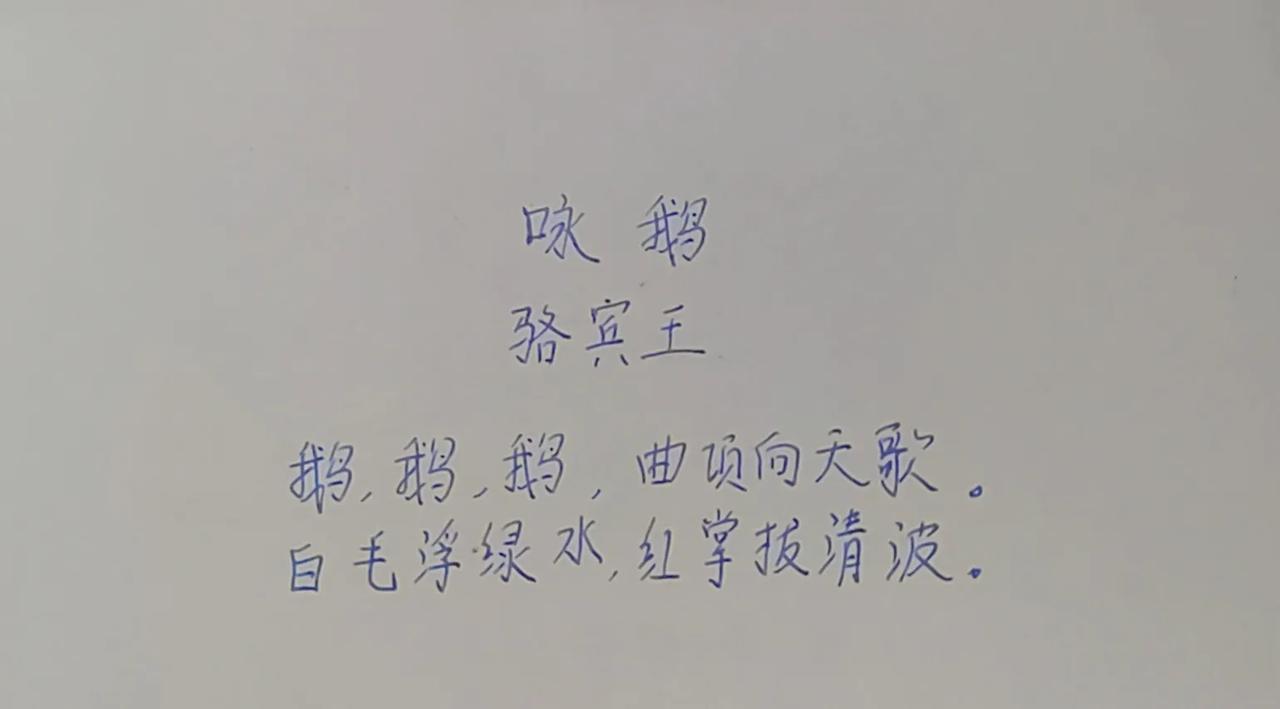 咏 鹅
骆宾王
鹅,鹅,鹅,曲项向天歌。
白毛浮绿水,红掌拔清波。